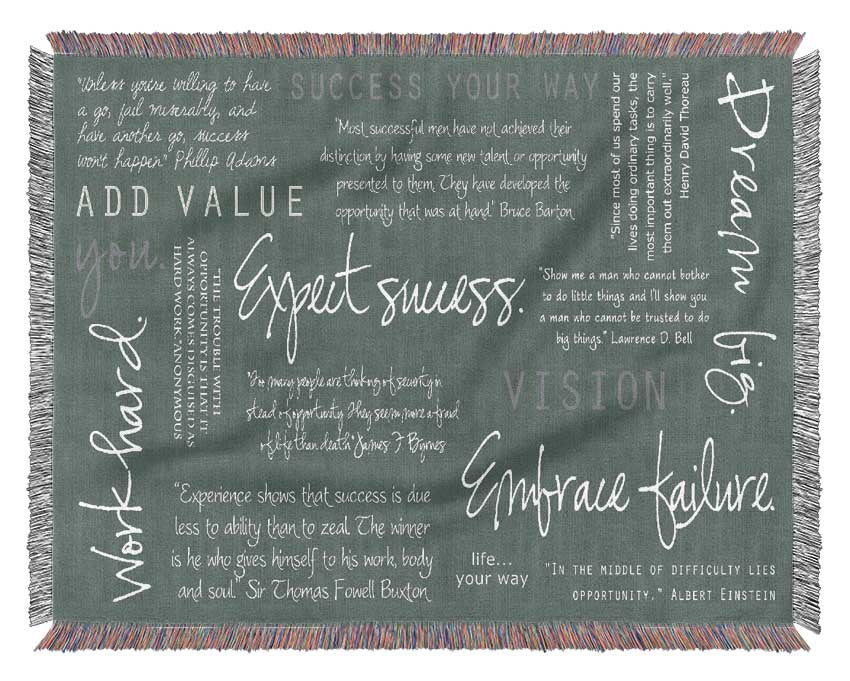 "Unless you're willing to have
a go, fail miserably, and
have another go, success
won't happen" Phillip Adams
SUCCESS YOUR WAY
"Most successful men have not achieved their
distinction by having some new talent or opportunity
presented to them. They have developed the
opportunity that was at hand." Bruce Barton
"Since most of us spend our
lives doing ordinary tasks, the
most important thing is to carry
them out extraordinarily well."
Henry David Thoreau
Dream big.
ADD VALUE
you.
THE TROUBLE WITH
OPPORTUNITY IS THAT IT
ALWAYS COMES DISGUISED AS
HARD WORK."ANONYMOUS
Expect success.
"Show me a man who cannot bother
to do little things and I'll show you
a man who cannot be trusted to do
big things." Lawrence D. Bell
Work hard.
"Too many people are thinking of security in
stead of opportunity. They seem more afraid
of life than death" James F. Byrnes
VISION
Embrace failure.
"Experience shows that success is due
less to ability than to zeal. The winner
is he who gives himself to his work, body
and soul." Sir Thomas Fowell Buxton
life...
your way
"IN THE MIDDLE OF DIFFICULTY LIES
OPPORTUNITY." ALBERT EINSTEIN